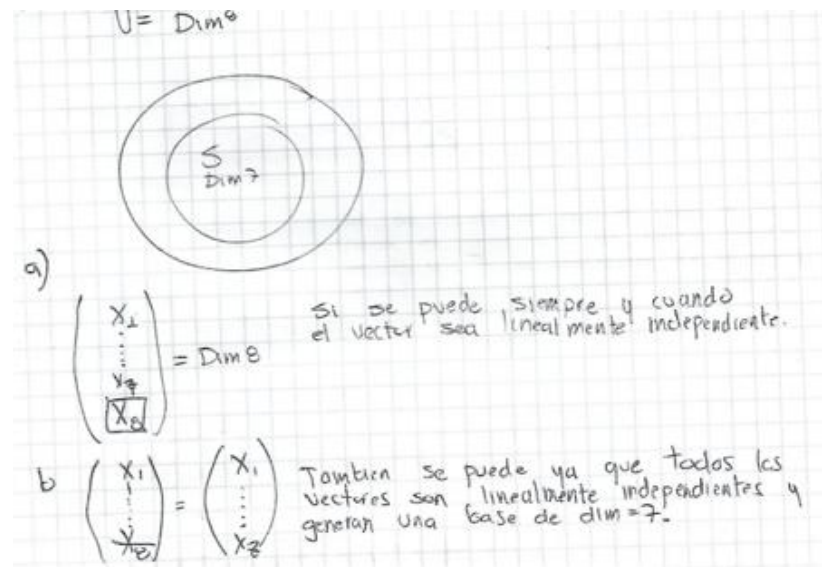 U = Dim 8
S
Dim 7
a)
X₁
X₇
X₈
= Dim 8
Si se puede siempre y cuando
el vector sea linealmente independiente.
b
X₁
X₈
=
X₁
X₇
Tambien se puede ya que todos los
vectores son linealmente independientes y
generan una base de dim = 7.